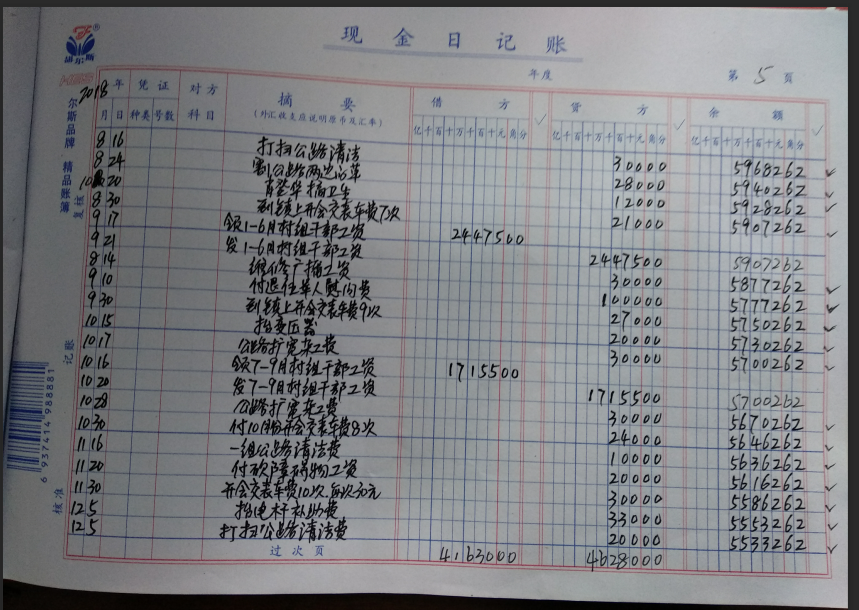 现金日记账
年度 第 5 页
胡尔斯
尔斯品牌 精品账簿
复核
记账
核准
6 937414 988881
2018 年 凭证 对方 摘要 借方 贷方 余额
月 日 种类 号数 科目 (外汇收支应说明原币及汇率) 亿千百十万千百十元角分 亿千百十万千百十元角分 亿千百十万千百十元角分
8 16 打扫公路清洁 30000 5968262
8 24 割公路两边的草 28000 5940262
10 20 搞卫生 12000 5928262
8 30 到镇上开会交表车费7次 21000 5907262
9 17 领1-6月村组干部工资 2447500
9 21 发1-6月村组干部工资 2447500 5907262
8 14 维修广播工资 30000 5877262
9 10 付退伍军人慰问费 100000 5777262
9 30 到镇上开会交表车费9次 27000 5750262
10 15 抬变压器 20000 5730262
10 17 公路扩宽杂工费 30000 5700262
10 16 领7-9月村组干部工资 1715500
10 20 发7-9月村组干部工资 1715500 5700262
10 28 公路扩宽杂工费 30000 5670262
10 30 付10月份开会交表车费8次 24000 5646262
11 16 一组公路清洁费 10000 5636262
11 20 付砍障碍物工资 20000 5616262
11 30 开会交表车费10次,每次30元 30000 5586262
12 5 抬电杆补助费 33000 5553262
12 5 打扫公路清洁费 20000 5533262
过次页 4163000 4628000